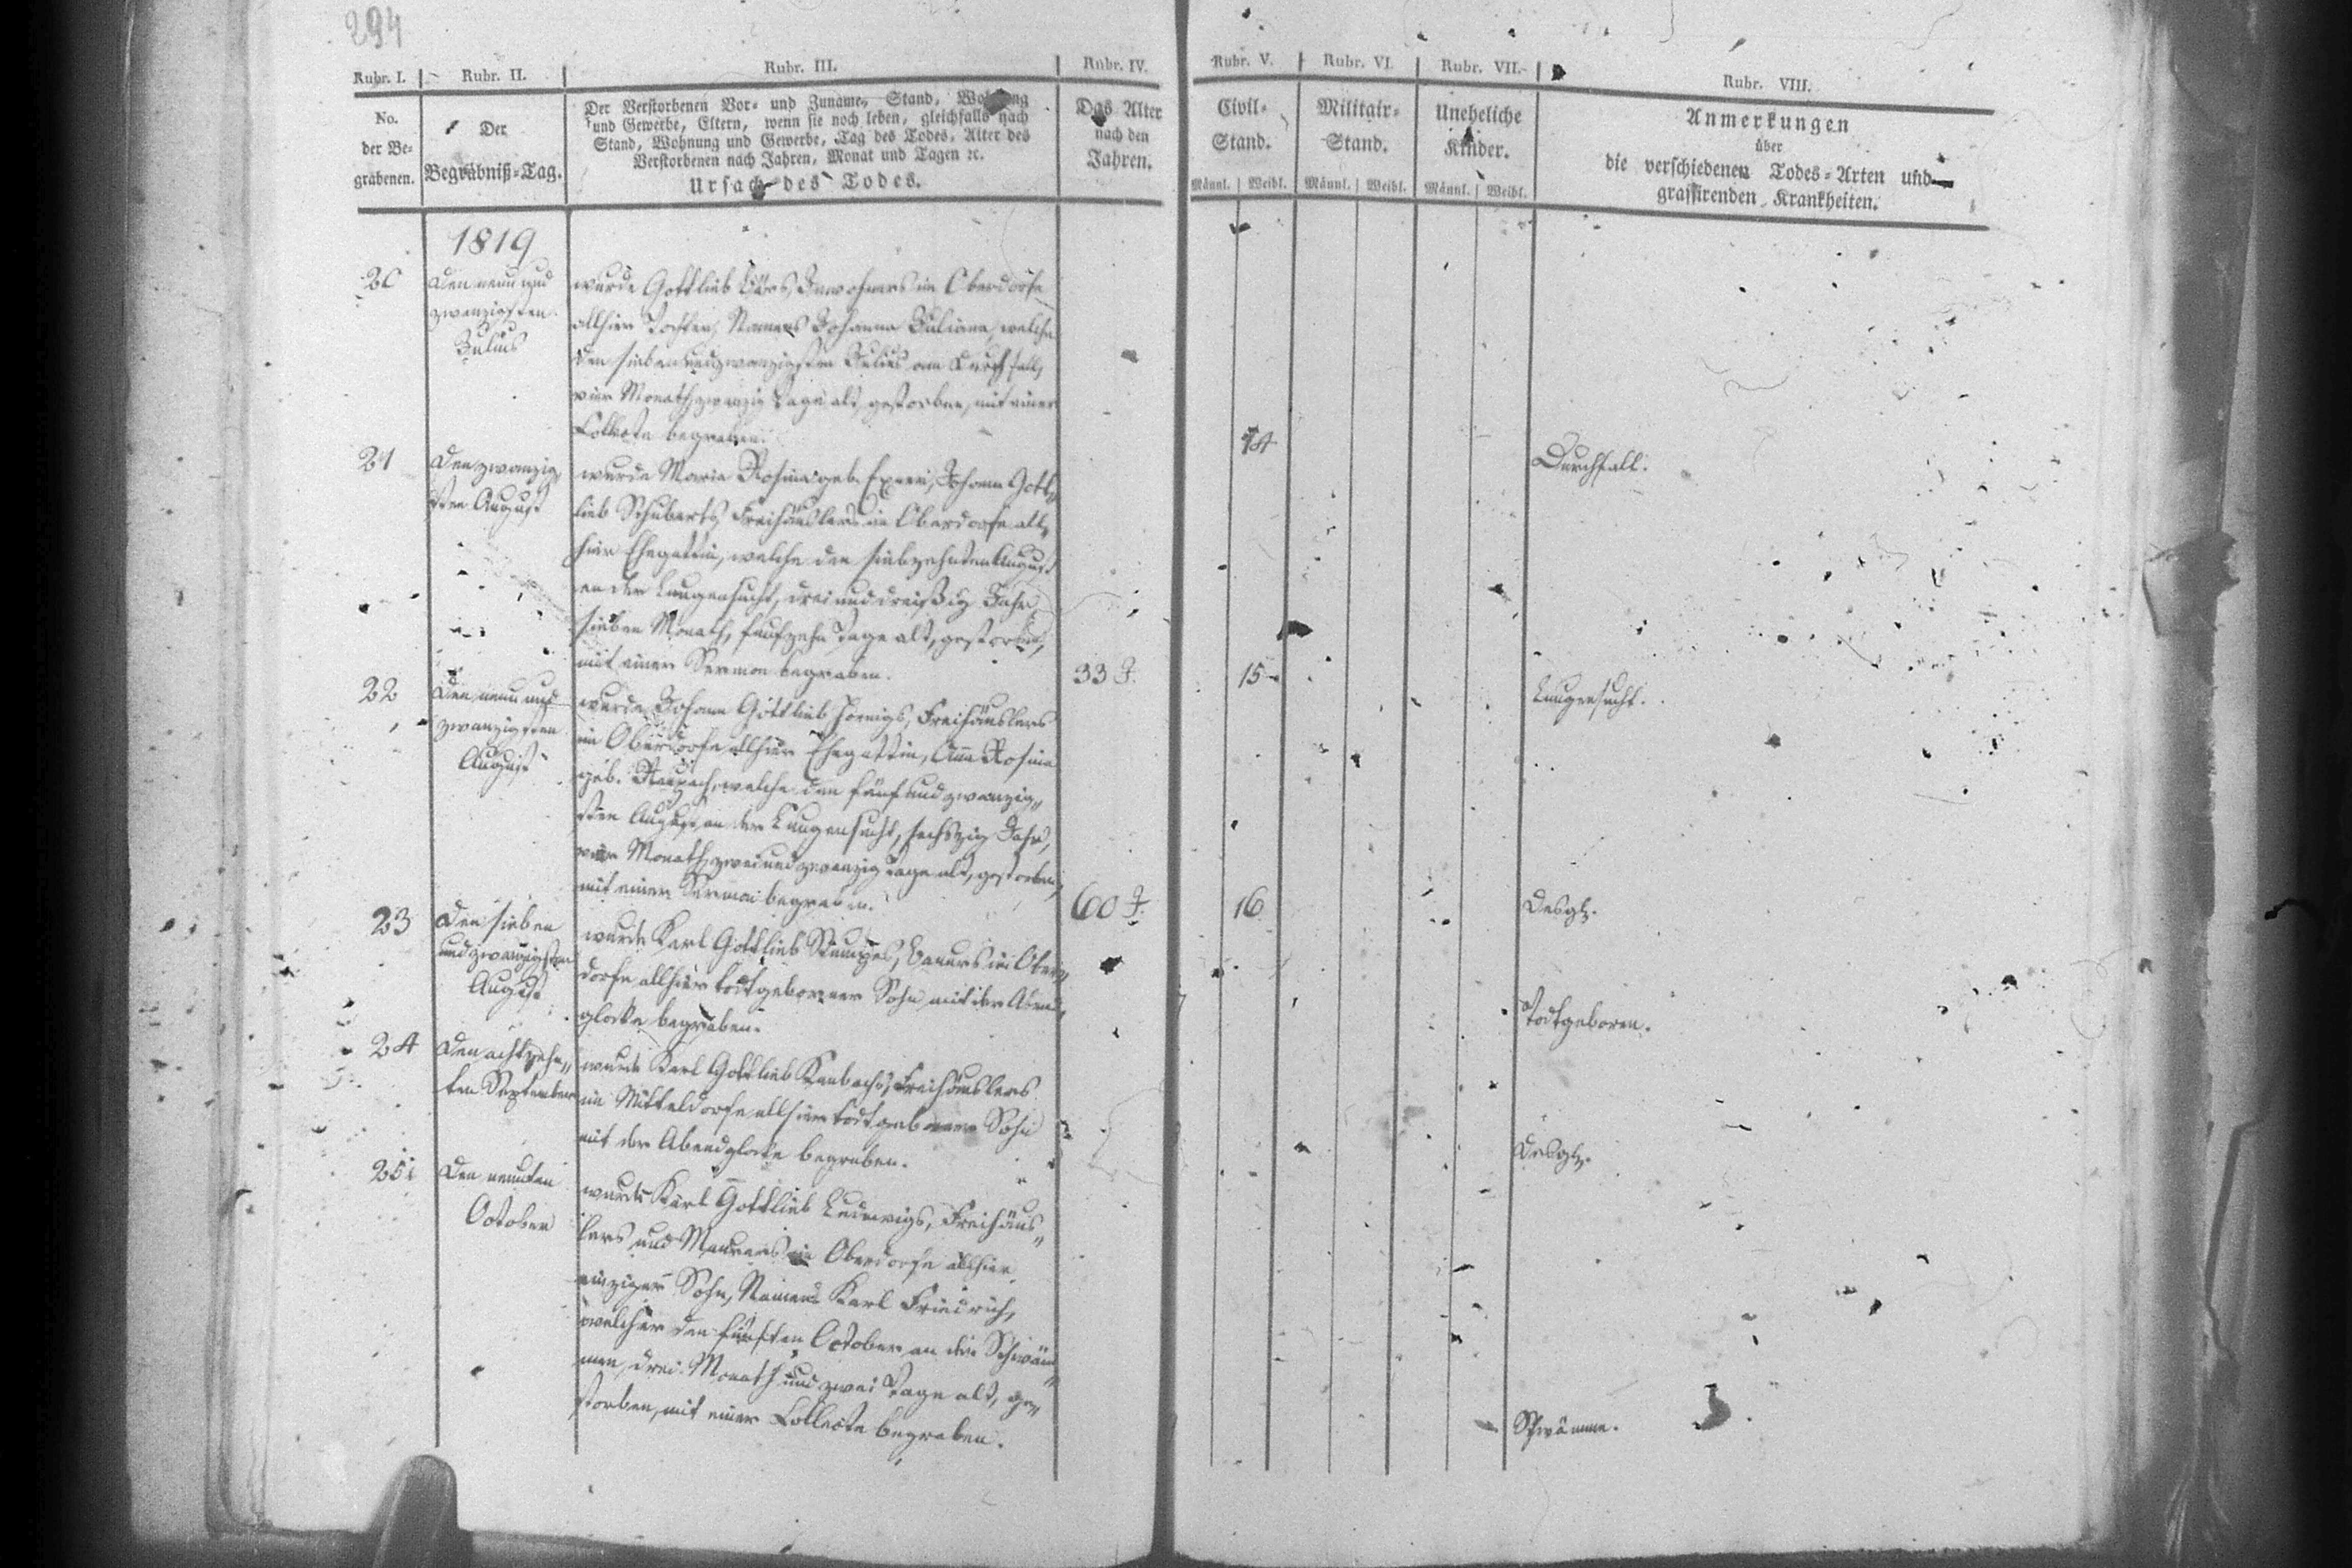 294
Rubr. I. Rubr. II. Rubr. III. Rubr. IV. Rubr. V. Rubr. VI. Rubr. VII. Rubr. VIII.
No.
der Be-
grabenen.
Der
Begräbniß-Tag.
Der Verstorbenen Vor- und Zuname, Stand, Wohnung
und Gewerbe, Eltern, wenn sie noch leben, gleichfalls nach
Stand, Wohnung und Gewerbe, Tag des Todes, Alter des
Verstorbenen nach Jahren, Monat und Tagen ꝛc.
Ursach des Todes.
Das Alter
nach den
Jahren.
Civil-
Stand.
Männl. Weibl.
Militair-
Stand.
Männl. Weibl.
Uneheliche
Kinder.
Männl. Weibl.
Anmerkungen
über
die verschiedenen Todes-Arten und
grassirenden Krankheiten.
1819
20
Den neun und
zwanzigsten
Julius
wurde Gottlieb Inwohners im Oberdorfe
allhier Tochter, Namens Johanna Juliane, welche
den sieben und zwanzigsten Julius am Durchfall,
vier Monath zwanzig Tage alt, gestorben, mit einer
Collecte begraben.
14
Durchfall.
21
Den zwanzig-
sten August
wurde Maria Rosina geb. Exner, Johann Gott-
lieb Schuberts, Freihäuslers im Oberdorfe all-
hier Ehegattin, welche den siebzehnten August
an der Lungensucht, drei und dreißig Jahr,
sieben Monath, fünfzehn Tage alt, gestorben,
mit einer Sermon begraben.
33 J.
15
Lungensucht.
22
Den neun und
zwanzigsten
August
wurde Johann Gottlieb Hornigs, Freihäuslers
im Oberdorfe allhier Ehegattin, Anna Rosina
geb. Raupach, welche den fünf und zwanzig-
sten August an der Lungensucht, sechszig Jahr,
vier Monath, zwei und zwanzig Tage alt, gestorben,
mit einer Sermon begraben.
60 J.
16
Desgl.
23
Den sieben
und zwanzigsten
August
wurde Karl Gottlieb Stumpes, Bauers im Ober-
dorfe allhier todtgeborner Sohn mit der Abend-
glocke begraben.
Todtgeboren.
24
Den achtzehn-
ten September
wurde Karl Gottlieb Freihäuslers
im Mitteldorfe allhier todtgeborner Sohn
mit der Abendglocke begraben.
Desgl.
25
Den neunten
October
wurde Karl Gottlieb Ludewigs, Freihäus-
lers und Maurers im Oberdorfe allhier
einziger Sohn, Namens Karl Friedrich,
welcher den fünften October an die Schwäm-
men, drei Monath und zwei Tage alt, ge-
storben, mit einer Collecte begraben.
Schwämme.